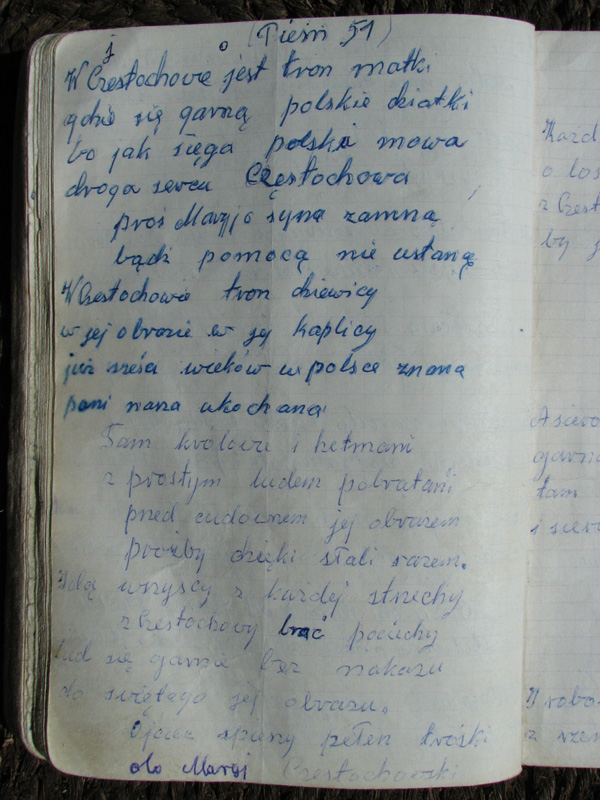 (Pieśń 51)
W Czestochowie jest tron matki
gdzie się garną polskie dziatki
bo jak sięga polska mowa
droga sercu Częstochowa
proś Maryjo syna zamną
bądz pomocą nie ustaną
W Czestochowie tron dziewicy
w jej obrazie w jej kaplicy
już sześć wieków w polsce znana
pani nasza ukochana
Tam królowie i hetmani
z prostym ludem pobratani
przed cudownem jej obrazem
prożby dzięki słali razem.
wszyscy z każdej strzechy
z Czestochowy brać pociechy
lud się garnie bez nakazu
do świętego jej obrazu.
Ojciec spieszy pełen troski
do Maryi Czestochowski
Każd
o los
z Czest
by
A siero
garną
tam
i sierо